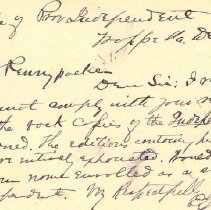 of Prov Independent
Woppe Ha. De
Pennypacker
Dear Sir: I r
not comply with your r
the back copies of the Indep
oned. The editions containing
re entirely exhausted. Would
name enrolled as a s
pendent. My Respectfully